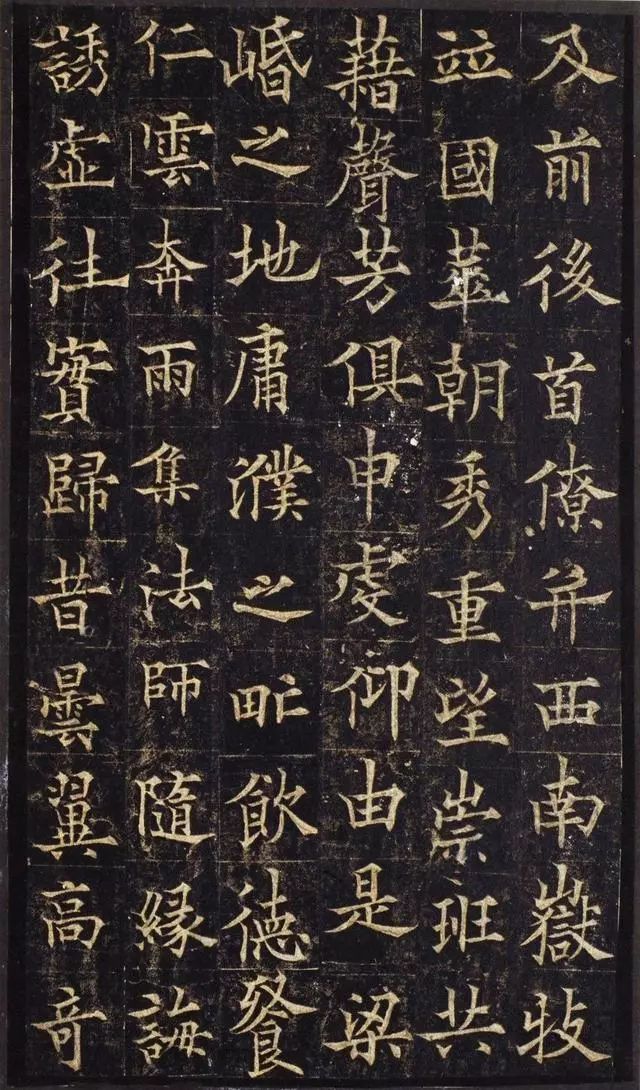 及前後首僚并西南嶽牧
竝國華朝秀重望崇班共
藉聲芳俱申虔仰由是梁
崏之地庸濮之甿飲德餐
仁雲奔雨集法師隨緣誨
誘虛往實歸昔曇翼高奇